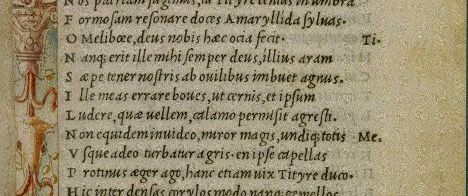 N os patriam fugimus, tu Tityre lentus in umbra
F ormosam resonare doces Amaryllida syluas.
O Melibœe, deus nobis hæc ocia fecit. Ti.
N anq; erit ille mihi semper deus, illius aram
S æpe tener nostris ab ouilibus imbuet agnus.
I lle meas errare boues, ut cernis, et ipsum
L udere, quæ uellem, calamo permisit agresti.
N on equidem inuideo, miror magis, undiq; totis Me.
V sque adeo turbatur agris. en ipse capellas
P rotinus æger ago, hanc etiam uix Tityre duco.
H ic inter densas corylos modo nanq; gemellos